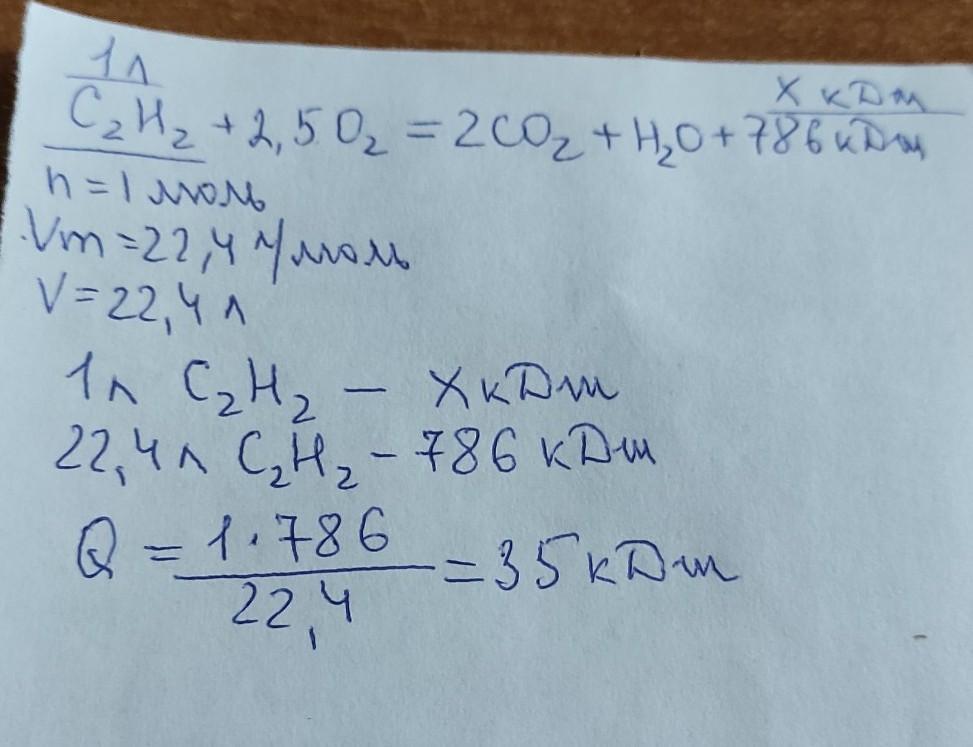 1л
X кДж
C₂H₂ + 2,5O₂ = 2CO₂ + H₂O + 786кДж
n = 1 моль
Vm = 22,4 л/моль
V = 22,4 л
1л C₂H₂ – XкДж
22,4л C₂H₂ – 786 кДж
Q = 1·786 / 22,4 = 35 кДж